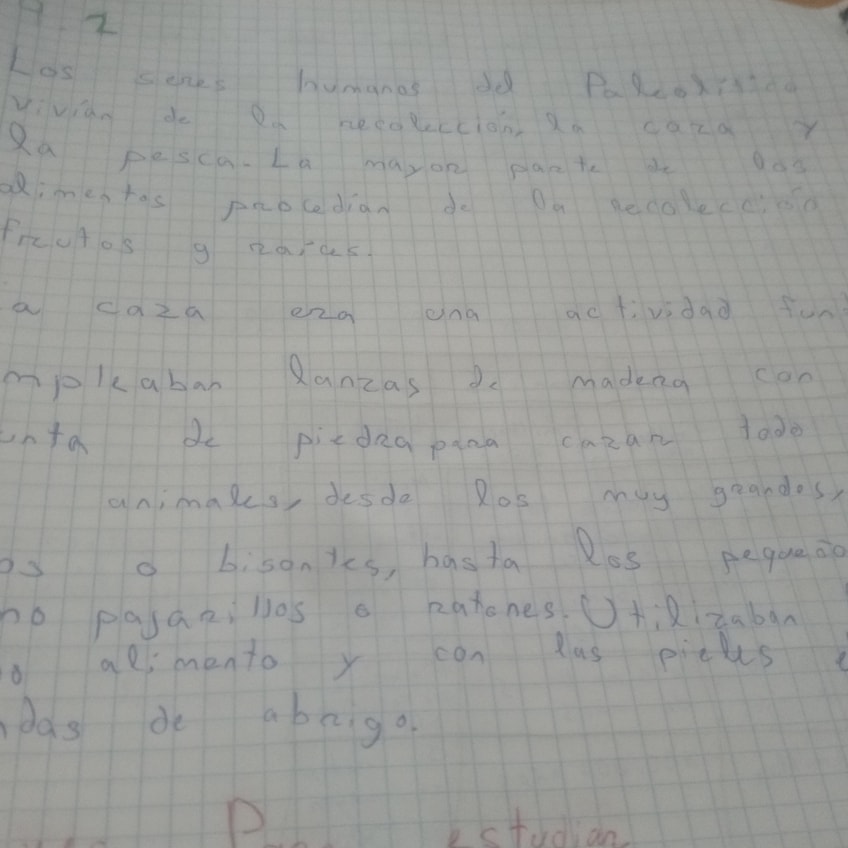 2
Los seres humanos del Paleolitico
vivian de la recolección, la caza y
la pesca. La mayor parte de los
alimentos procedian de la recolección
frutos y raices.
a caza era una actividad fun
mpleaban lanzas de madera con
unta de piedra para cazar todo
animales, desde los muy grandes,
os o bisontes, hasta los pequeño
no pajarillos o ratones. Utilizaban
o alimento y con las pieles e
ndas de abrigo.
estudian